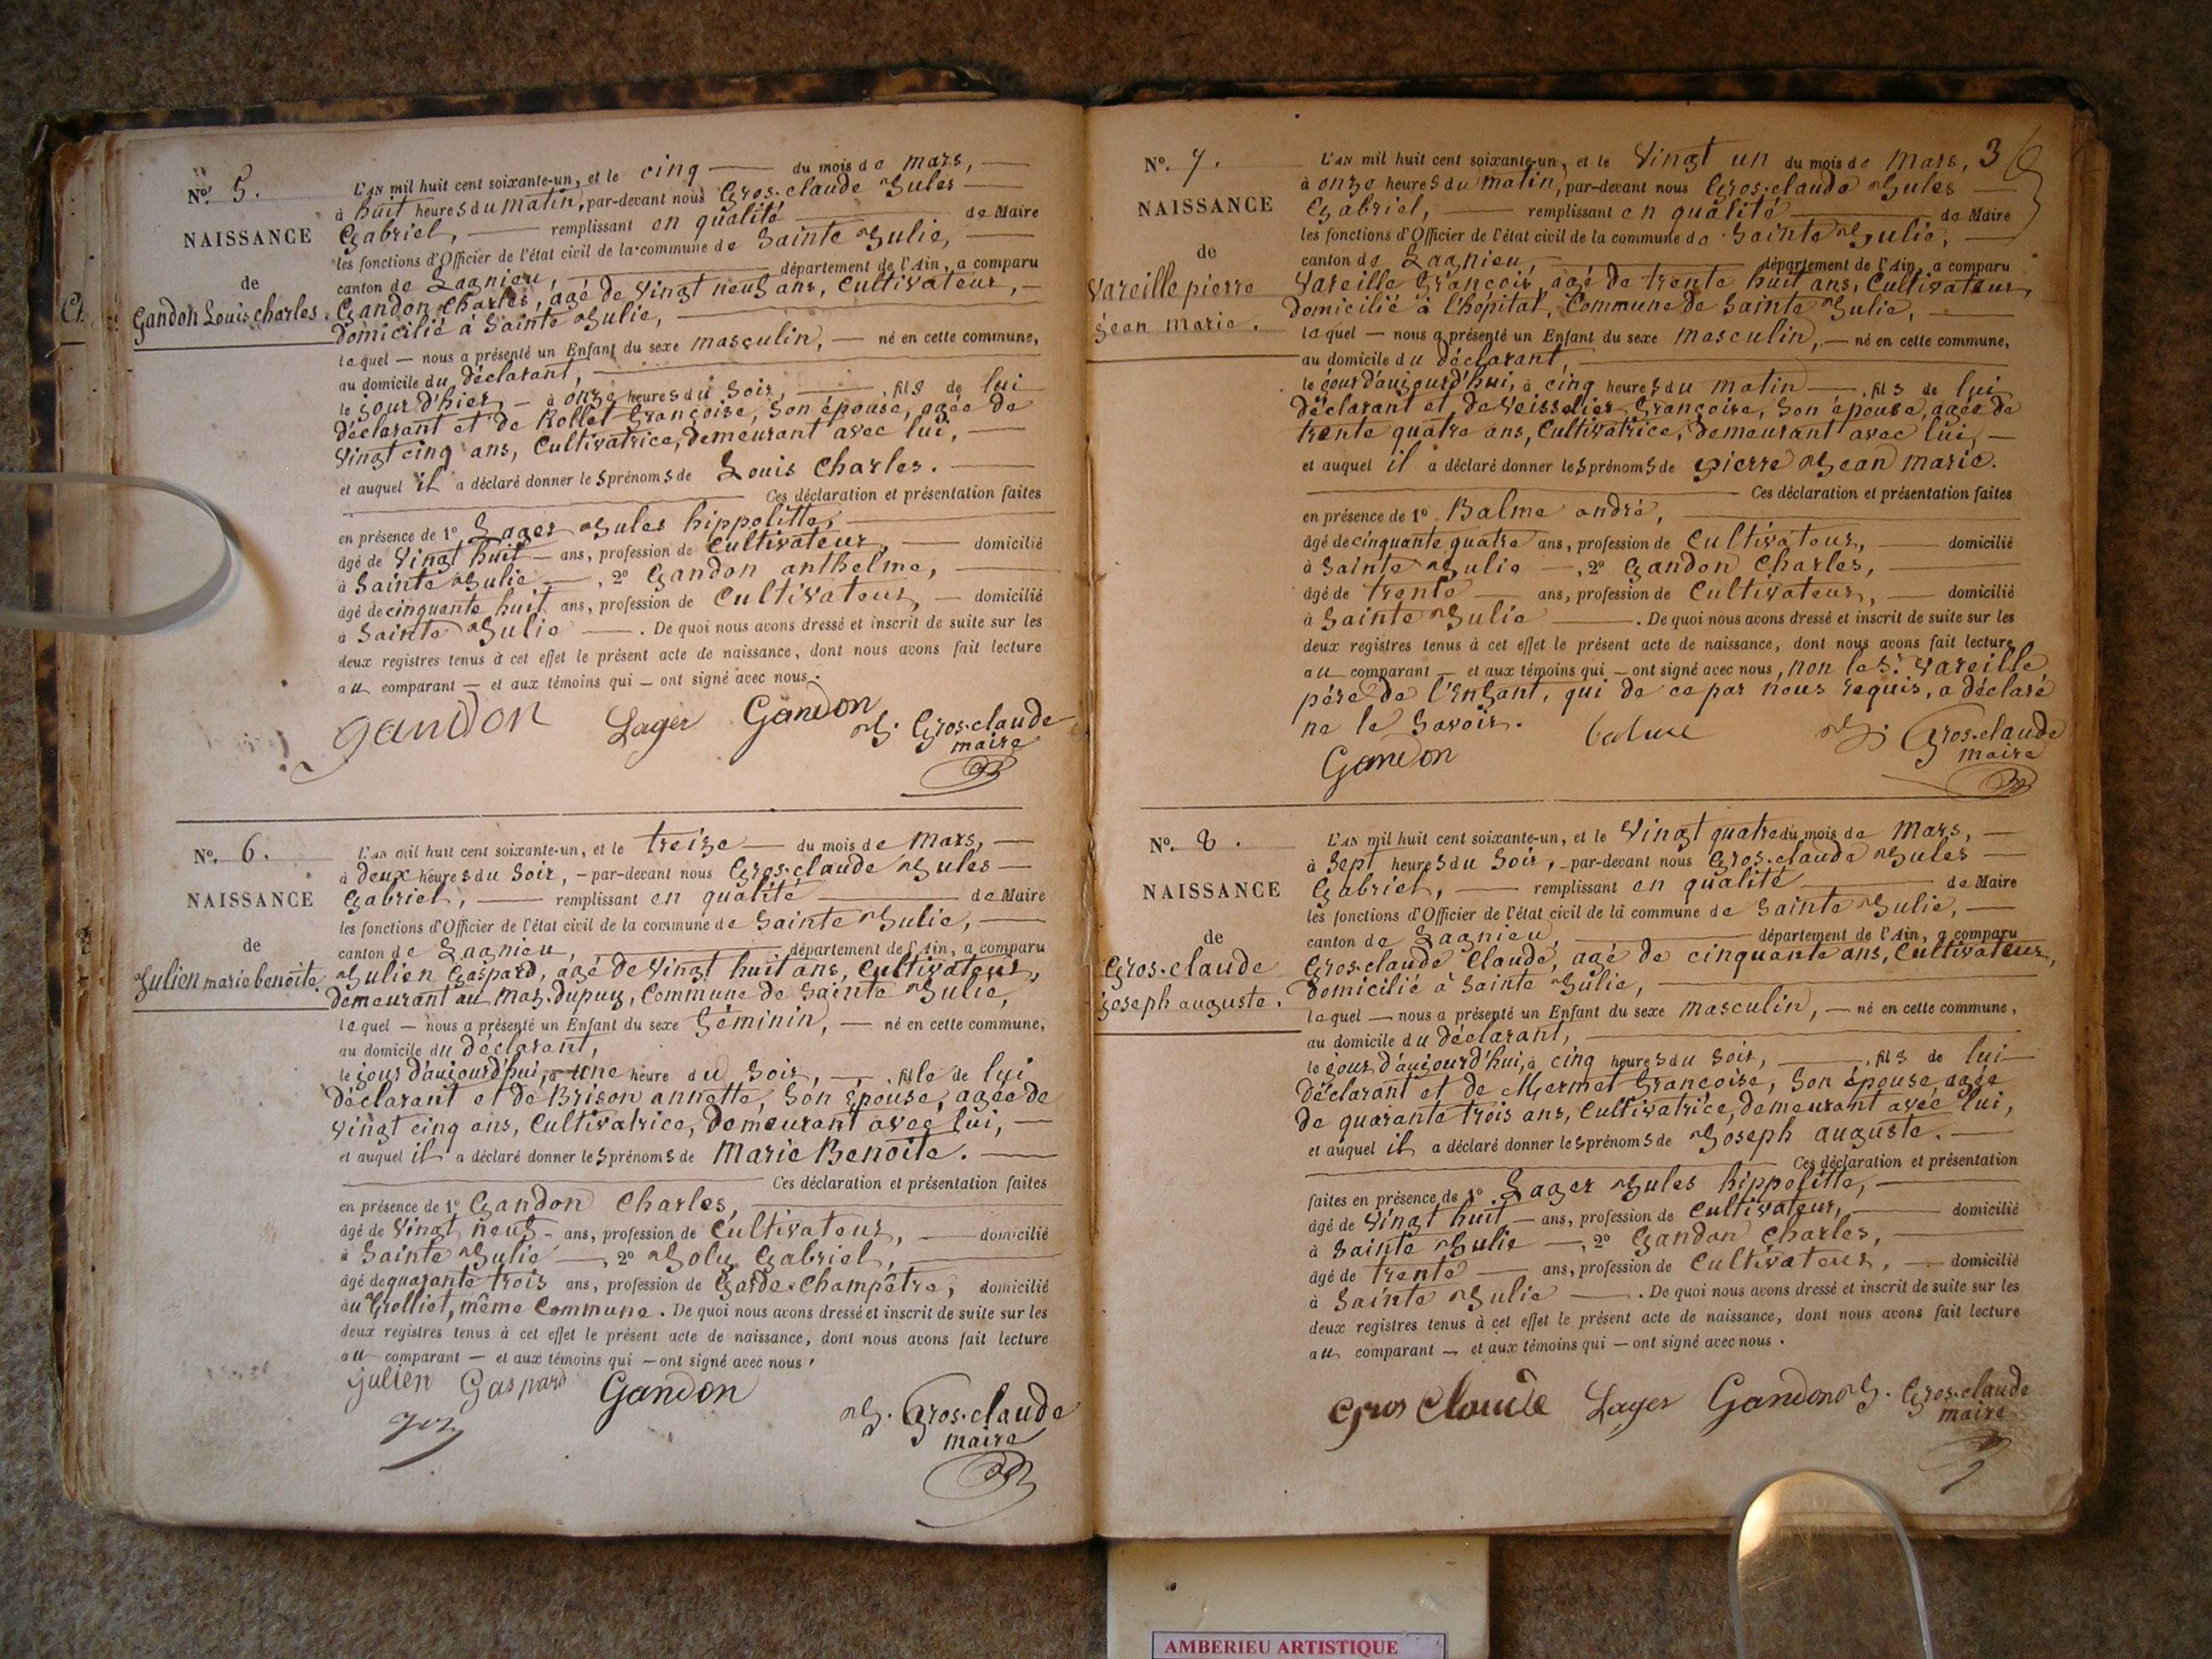 Nº. 5.
NAISSANCE
de
Gandon Louis charles.
L'AN mil huit cent soixante-un, et le cinq du mois de mars,
à huit heures du matin, par-devant nous Gros-claude Jules
Gabriel, remplissant en qualité de Maire
les fonctions d'Officier de l'état civil de la commune de Sainte Julie,
canton de Lagnieu, département de l'Ain, a comparu
Gandon Charles, agé de vingt neuf ans, Cultivateur,
domicilié à Sainte Julie,
lequel nous a présenté un Enfant du sexe masculin, né en cette commune,
au domicile du déclarant,
le jour d'hier, à onze heures du soir, fils de lui
déclarant et de Rollet françoise, son épouse, agée de
vingt cinq ans, Cultivatrice, demeurant avec lui,
et auquel il a déclaré donner les prénoms de Louis Charles.
Ces déclaration et présentation faites
en présence de 1º Lager Jules hippolitte,
âgé de vingt huit ans, profession de Cultivateur, domicilié
à Sainte Julie, 2º Gandon anthelme,
âgé de cinquante huit ans, profession de Cultivateur, domicilié
à Sainte Julie. De quoi nous avons dressé et inscrit de suite sur les
deux registres tenus à cet effet le présent acte de naissance, dont nous avons fait lecture
au comparant et aux témoins qui ont signé avec nous.
gandon Lager Gandon J. Gros-claude
maire
Nº. 6.
NAISSANCE
de
Julien marie benoite
L'AN mil huit cent soixante-un, et le treize du mois de Mars,
à deux heures du Soir, par-devant nous Gros-claude Jules
Gabriel, remplissant en qualité de Maire
les fonctions d'Officier de l'état civil de la commune de Sainte Julie,
canton de Lagnieu, département de l'Ain, a comparu
Julien Gaspard, agé de vingt huit ans, Cultivateur,
demeurant au Mas-dupuy, Commune de Sainte Julie,
lequel nous a présenté un Enfant du sexe féminin, né en cette commune,
au domicile du déclarant,
le jour d'aujourd'hui, à une heure du Soir, fille de lui
déclarant et de Brison annette, son épouse, agée de
vingt cinq ans, Cultivatrice, demeurant avec lui,
et auquel il a déclaré donner les prénoms de Marie Benoite.
Ces déclaration et présentation faites
en présence de 1º Gandon Charles,
âgé de vingt neuf ans, profession de Cultivateur, domicilié
à Sainte Julie, 2º Joly Gabriel,
âgé de quarante trois ans, profession de Garde-Champêtre, domicilié
au Trolliet, même Commune. De quoi nous avons dressé et inscrit de suite sur les
deux registres tenus à cet effet le présent acte de naissance, dont nous avons fait lecture
au comparant et aux témoins qui ont signé avec nous.
julien Gaspard Gandon J. Gros-claude
maire
Nº. 7.
NAISSANCE
de
Vareille pierre
jean marie.
L'AN mil huit cent soixante-un, et le vingt un du mois de Mars, 3
à onze heures du matin, par-devant nous Gros-claude Jules
Gabriel, remplissant en qualité de Maire
les fonctions d'Officier de l'état civil de la commune de Sainte Julie,
canton de Lagnieu, département de l'Ain, a comparu
Vareille françois, agé de trente huit ans, Cultivateur,
domicilié à l'hôpital, Commune de Sainte Julie,
lequel nous a présenté un Enfant du sexe masculin, né en cette commune,
au domicile du déclarant,
le jour d'aujourd'hui, à cinq heures du matin, fils de lui
déclarant et de Veisselier françoise, son épouse, agée de
trente quatre ans, Cultivatrice, demeurant avec lui,
et auquel il a déclaré donner les prénoms de pierre Jean marie.
Ces déclaration et présentation faites
en présence de 1º Balme andré,
âgé de cinquante quatre ans, profession de Cultivateur, domicilié
à Sainte Julie, 2º Gandon Charles,
âgé de trente ans, profession de Cultivateur, domicilié
à Sainte Julie. De quoi nous avons dressé et inscrit de suite sur les
deux registres tenus à cet effet le présent acte de naissance, dont nous avons fait lecture
au comparant et aux témoins qui ont signé avec nous, non le Sr. Vareille
père de l'enfant, qui de ce par nous requis, a déclaré
ne le savoir.
Gandon J. Gros-claude
maire
Nº. 8.
NAISSANCE
de
Gros-claude
joseph auguste.
L'AN mil huit cent soixante-un, et le vingt quatre du mois de Mars,
à Sept heures du Soir, par-devant nous Gros-claude Jules
Gabriel, remplissant en qualité de Maire
les fonctions d'Officier de l'état civil de la commune de Sainte Julie,
canton de Lagnieu, département de l'Ain, a comparu
Gros-claude Claude, agé de cinquante ans, Cultivateur,
domicilié à Sainte Julie,
lequel nous a présenté un Enfant du sexe masculin, né en cette commune,
au domicile du déclarant,
le jour d'aujourd'hui, à cinq heures du soir, fils de lui
déclarant et de Mermet françoise, son épouse, agée
de quarante trois ans, Cultivatrice, demeurant avec lui,
et auquel il a déclaré donner les prénoms de Joseph auguste.
Ces déclaration et présentation
faites en présence de 1º Lager Jules hippolitte,
âgé de vingt huit ans, profession de Cultivateur, domicilié
à Sainte Julie, 2º Gandon Charles,
âgé de trente ans, profession de Cultivateur, domicilié
à Sainte Julie. De quoi nous avons dressé et inscrit de suite sur les
deux registres tenus à cet effet le présent acte de naissance, dont nous avons fait lecture
au comparant et aux témoins qui ont signé avec nous.
Gros Claude Lager Gandon J. Gros-claude
maire
AMBERIEU ARTISTIQUE